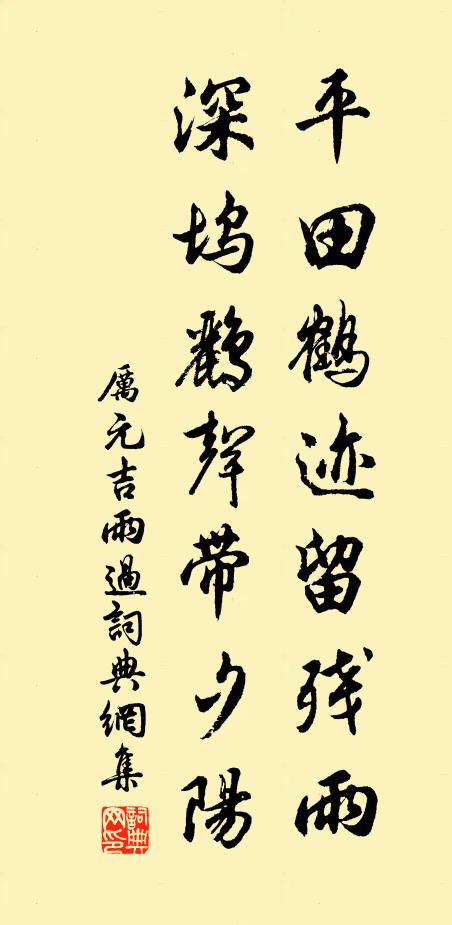 平田鹤迹留残雨
深坞鹳聲带夕陽
厲元吉雨過詞典網集
詞典网印